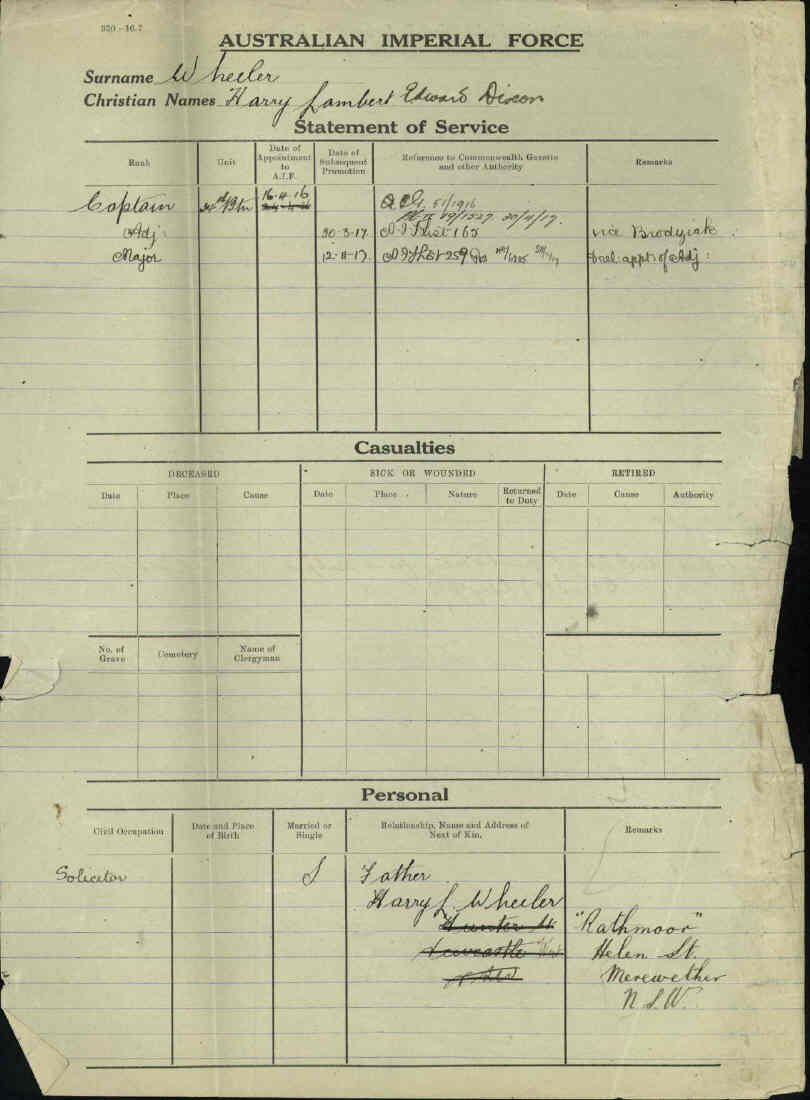 920 - 16.7
AUSTRALIAN IMPERIAL FORCE
Surname Wheeler
Christian Names Harry Lambert Edward Dixon
Statement of Service
Rank Unit Date of Appointment to A.I.F. Date of Subsequent Promotion Reference to Commonwealth Gazette and other Authority Remarks
Captain Btn 16.4.16 51/1916
20/4/17.
Adj 30-3-17 List 165 vice Brodziak
Major 12-11-17 List 259 appt of Adj:
Casualties
DECEASED SICK OR WOUNDED RETIRED
Date Place Cause Date Place Nature Returned to Duty Date Cause Authority
No. of Grave Cemetery Name of Clergyman
Personal
Civil Occupation Date and Place of Birth Married or Single Relationship, Name and Address of Next of Kin. Remarks
Solicitor S Father
Harry L Wheeler
Hunter St "Rathmoor"
Newcastle West Helen St.
NSW Merewether
N.S.W.